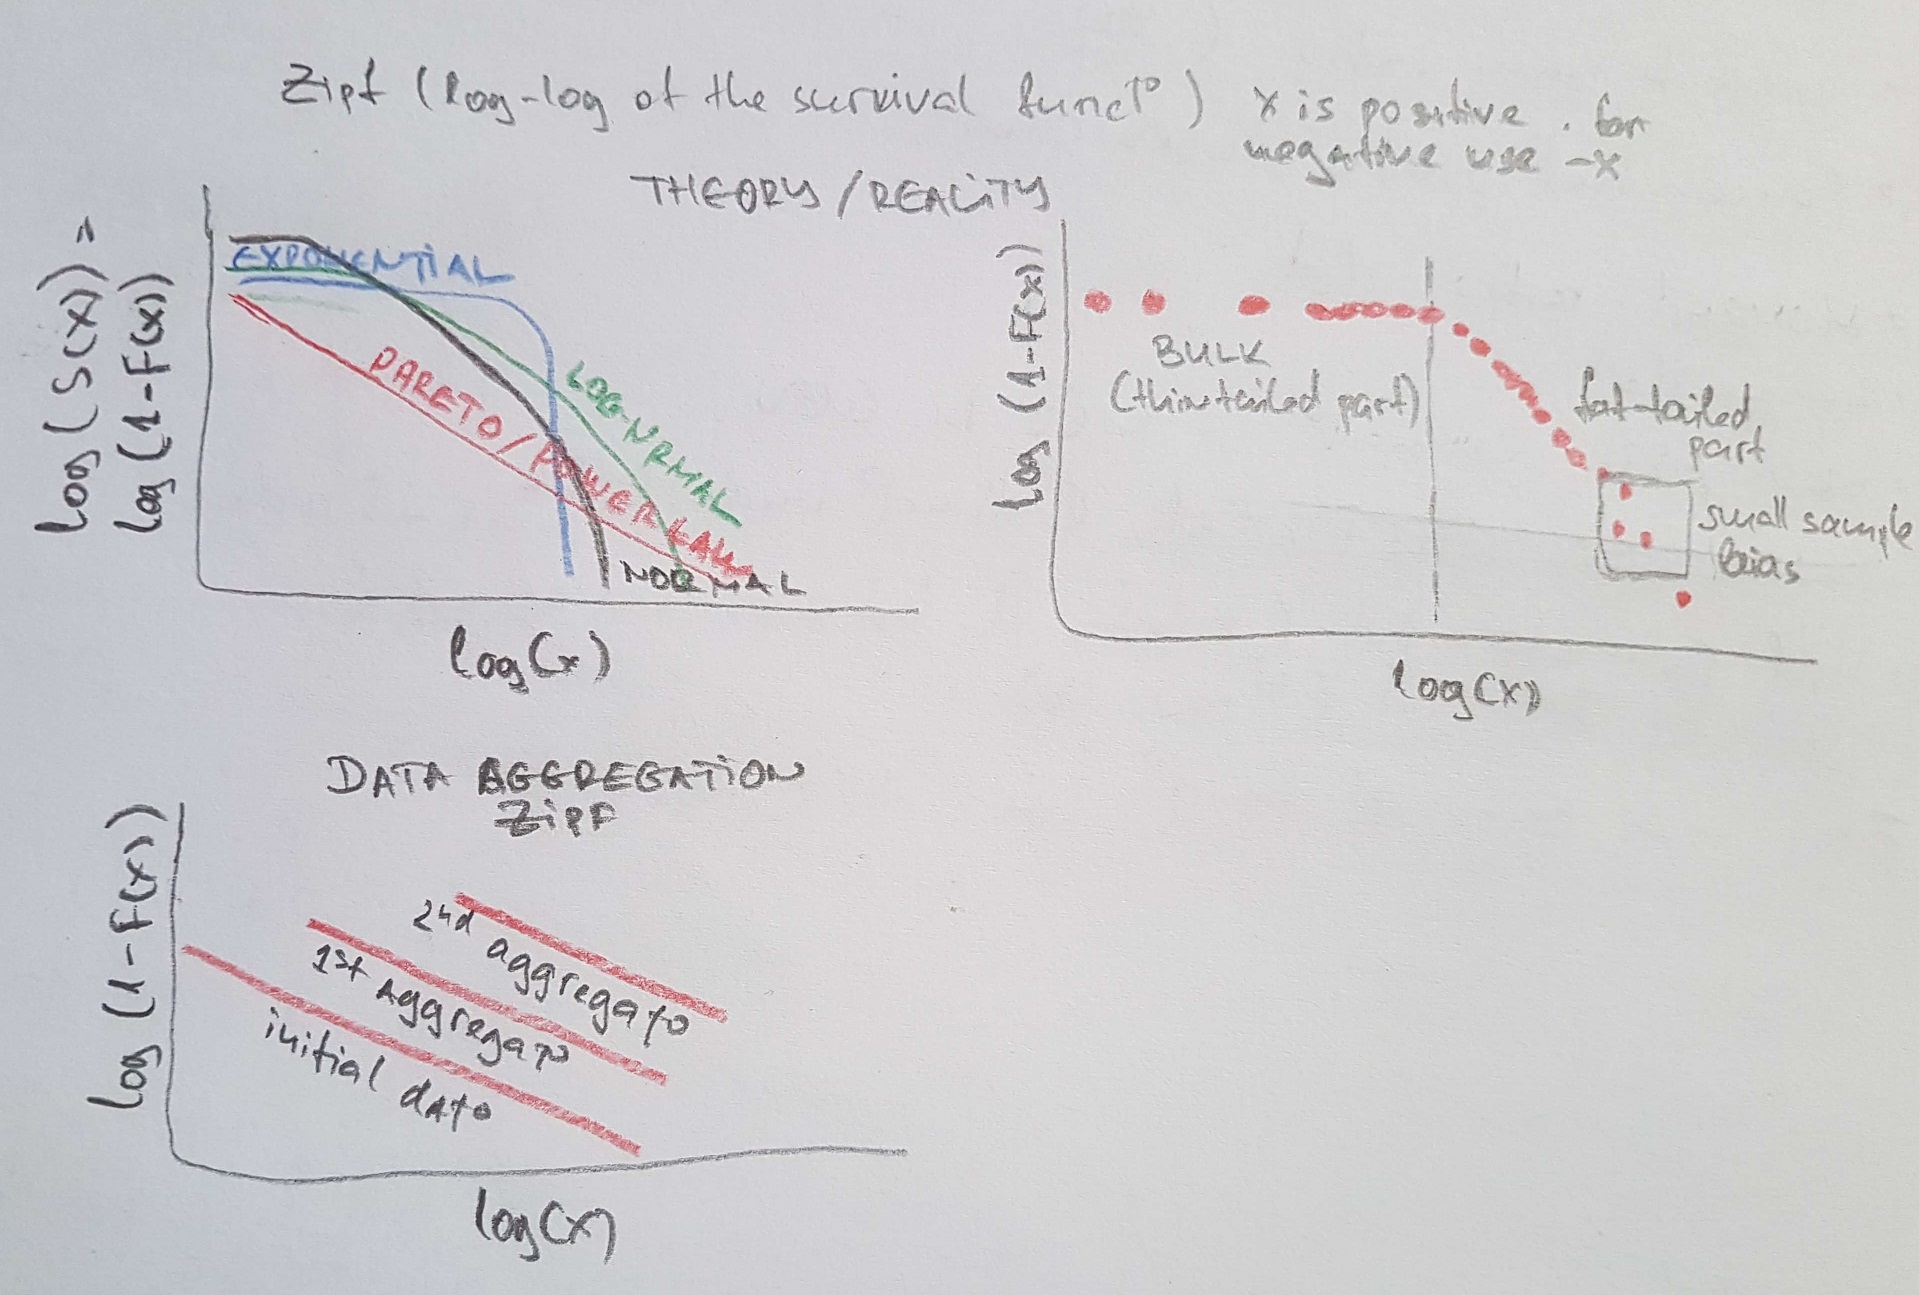 Zipf (log-log of the survival funct°) x is positive. for
negative use -x
THEORY / REALITY
log(S(x)) =
log(1-F(x))
EXPONENTIAL
PARETO / POWER LAW
LOG-NRMAL
NORMAL
log(x)
log(1-F(x))
BULK
(thin tailed part)
fat-tailed
part
small sample
bias
log(x)
DATA AGGREGATION
ZIPF
log(1-F(x))
2nd aggregat°
1st Aggregat°
initial dat°
log(x)